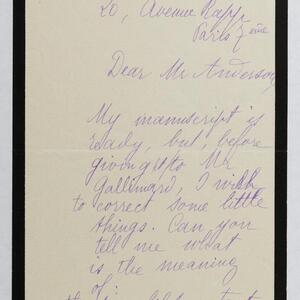 20, Avenue Rapp
Paris 7 ème
Dear Mr Anderson
My manuscript is
ready, but, before
giving it to Mr
Gallimard, I wish
to correct some little
things. Can you
tell me what
is the meaning
of: